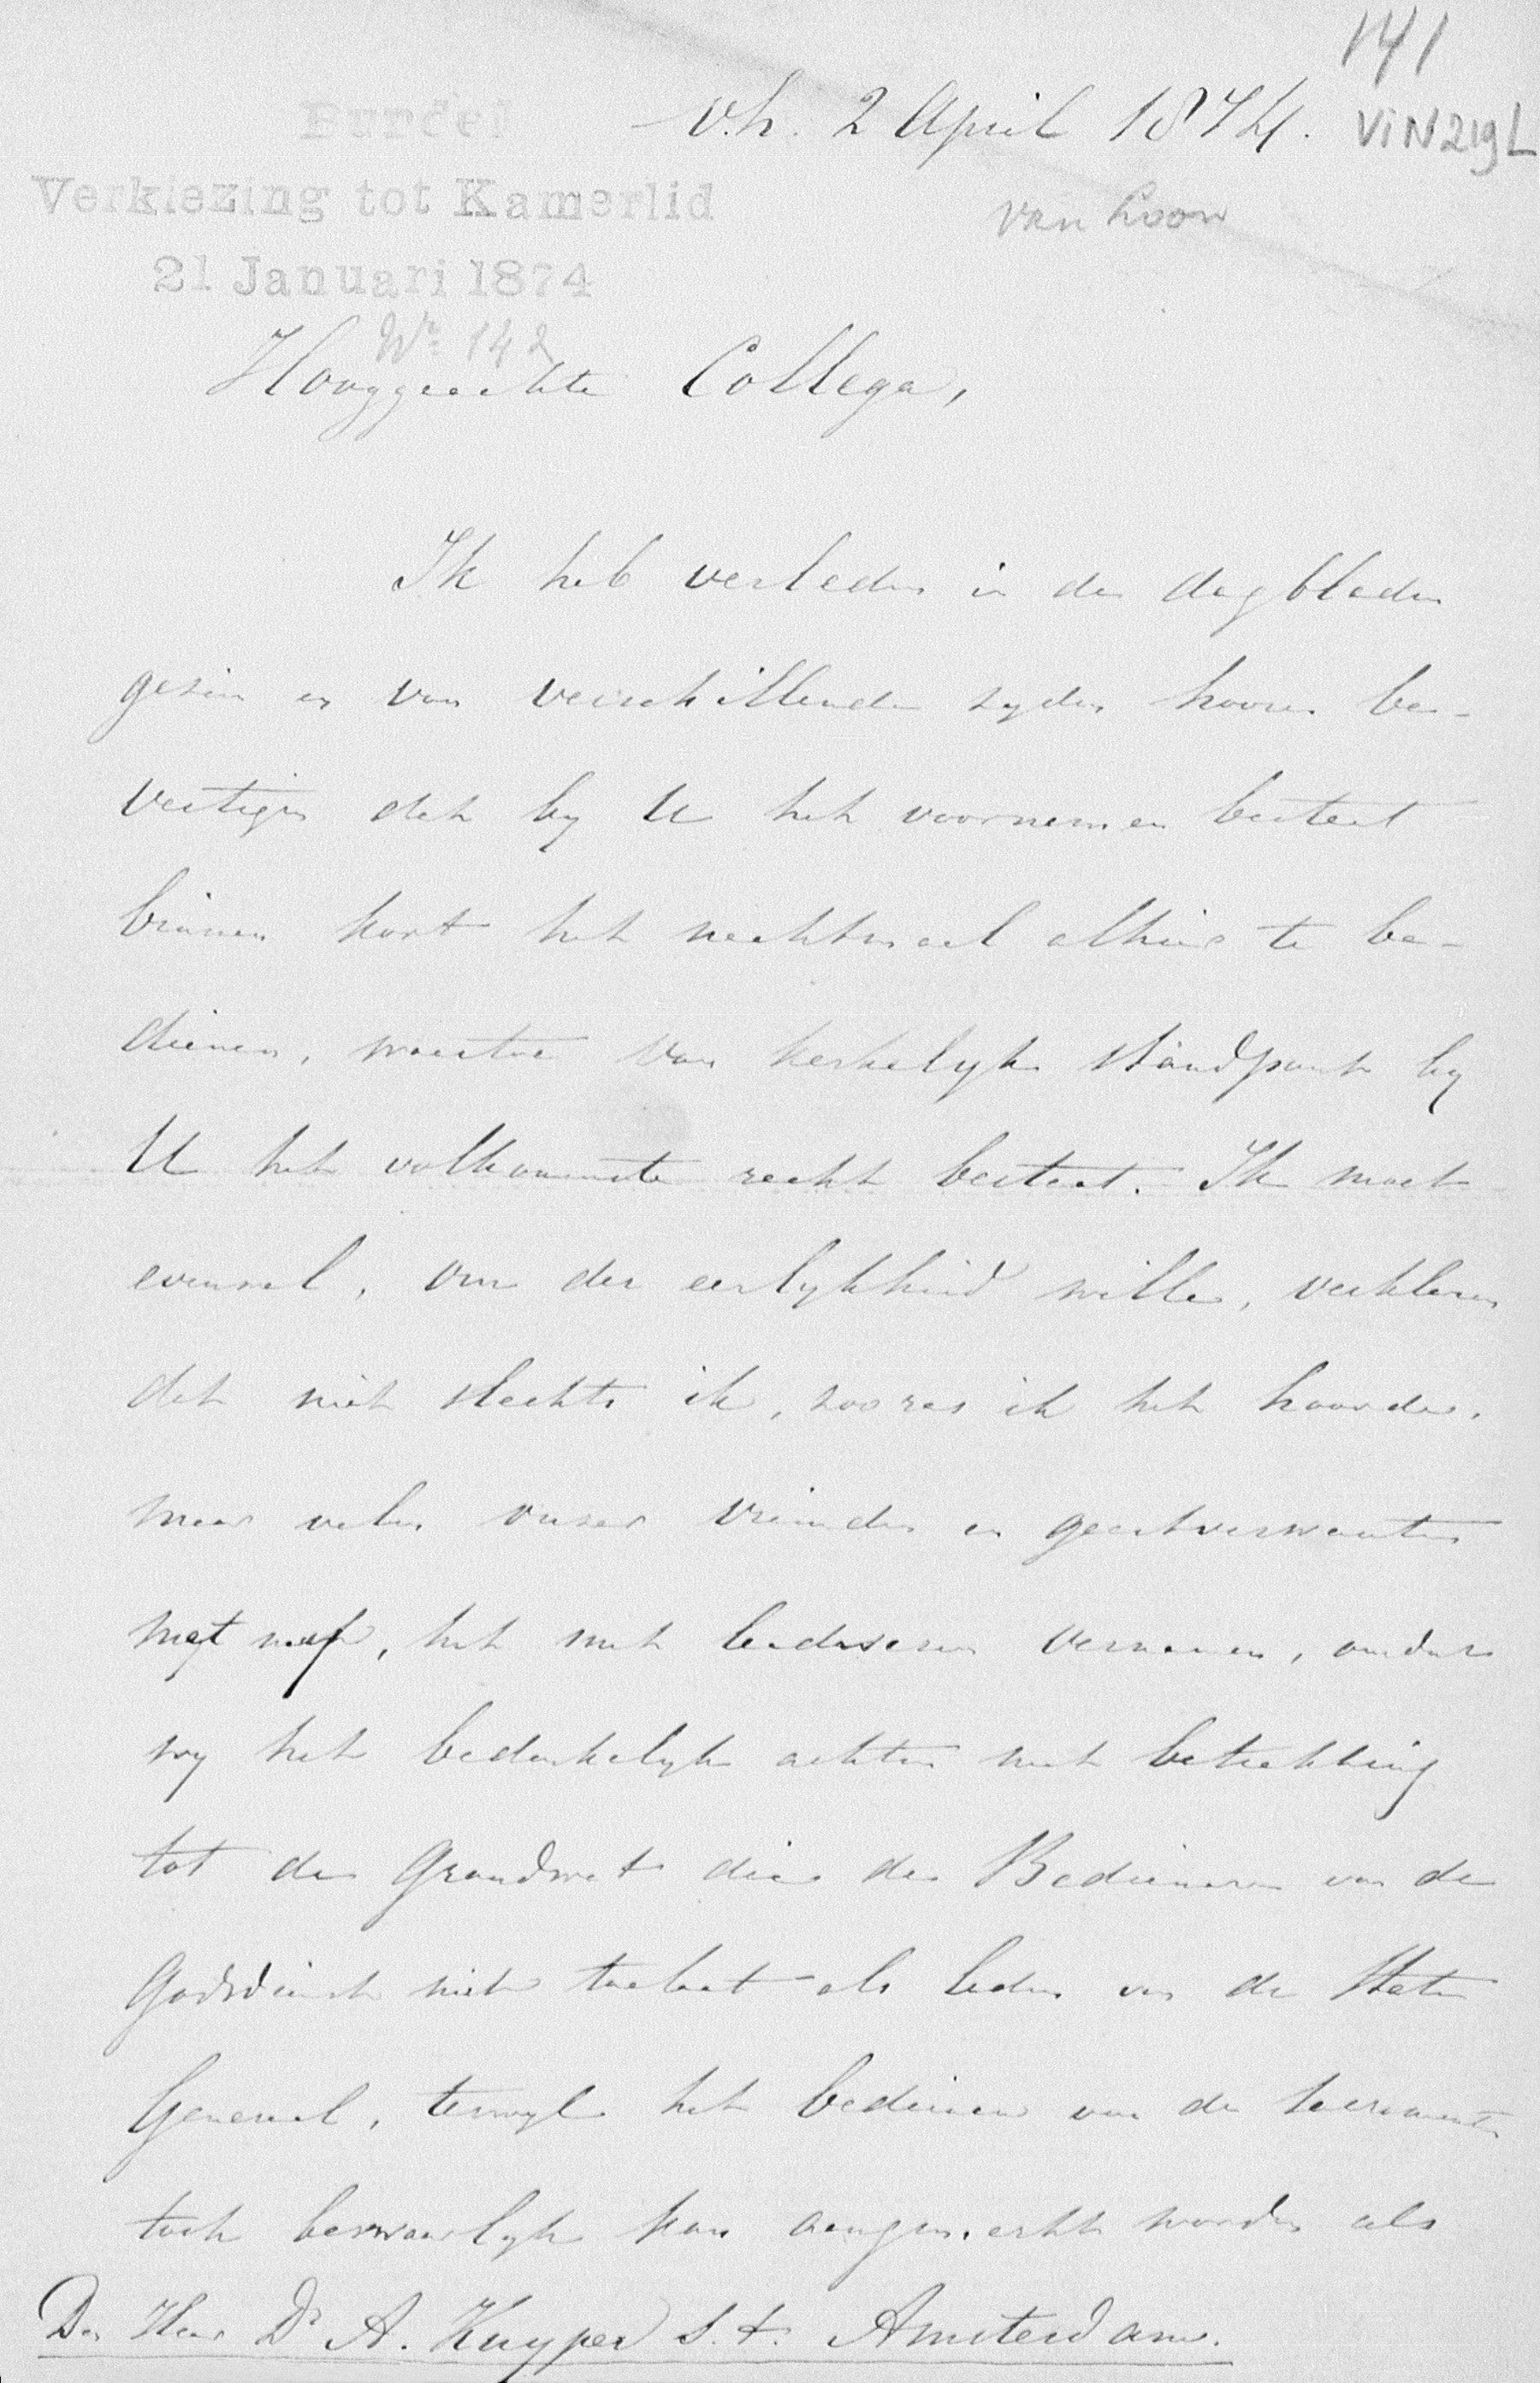 141
v.h. 2 April 1874.
ViN219L
Bundel
Verkiezing tot Kamerlid
21 Januari 1874
Nr. 142
van Loon
Hooggeachte Collega,
Ik heb verleden in de dagbladen
gezien en van verschillende zyden hooren be-
vestigen dat by U het voornemen bestaat
binnen kort het nachtmaal alhier te be-
dienen, waartoe van kerkelyk standpunt by
U het volkomenste recht bestaat. Ik moet
evenwel, om der eerlykheid wille, verklaren
dat niet slechts ik, zoo ras ik het hoorde,
maar velen onzer vrienden en geestverwanten
met my, het met leedwezen vernamen, omdat
wy het bedenkelyk achten met betrekking
tot de Grondwet die de Bedienaren van de
Godsdienst niet toelaat als leden van de Staten
Generaal, terwyl het bedienen van de sacramenten
toch bezwaarlyk kan aangemerkt worden als
Den Heer Dr. A. Kuyper s.t. Amsterdam.